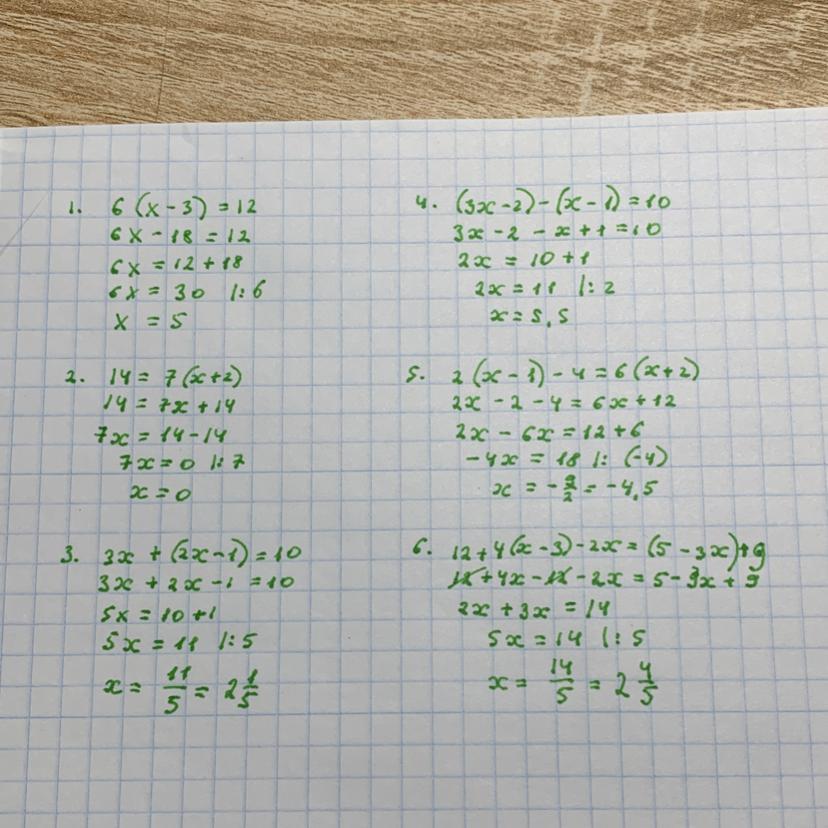 1. 6 (x - 3) = 12
6x - 18 = 12
6x = 12 + 18
6x = 30 |: 6
x = 5
2. 14 = 7 (x + 2)
14 = 7x + 14
7x = 14 - 14
7x = 0 |: 7
x = 0
3. 3x + (2x - 1) = 10
3x + 2x - 1 = 10
5x = 10 + 1
5x = 11 |: 5
x = 11/5 = 2 1/5
4. (3x - 2) - (x - 1) = 10
3x - 2 - x + 1 = 10
2x = 10 + 1
2x = 11 |: 2
x = 5,5
5. 2 (x - 1) - 4 = 6 (x + 2)
2x - 2 - 4 = 6x + 12
2x - 6x = 12 + 6
-4x = 18 |: (-4)
x = - 9/2 = -4,5
6. 12 + 4 (x - 3) - 2x = (5 - 3x) + 9
12 + 4x - 12 - 2x = 5 - 3x + 9
2x + 3x = 14
5x = 14 |: 5
x = 14/5 = 2 4/5